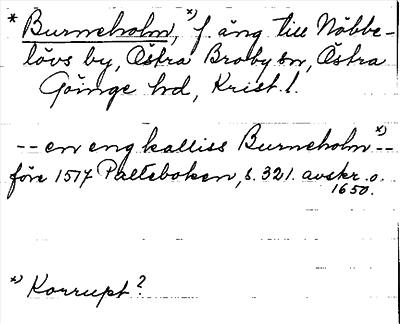 * Burneholm, *) f. äng till Nöbbe-
lövs by, Östra Broby sn, Östra
Göinge hd, Krist. l.
-- en eng kalliss Burneholm *) --
före 1517 Palteboken, s. 321. avskr. o.
1650.
*) Korrupt?